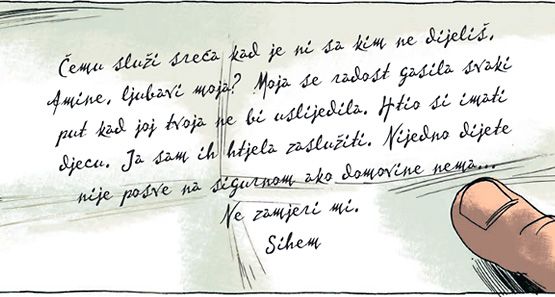 Čemu služi sreća kad je ni sa kim ne dijeliš,
Amine, ljubavi moja? Moja se radost gasila svaki
put kad joj tvoja ne bi uslijedila. Htio si imati
djecu. Ja sam ih htjela zaslužiti. Nijedno dijete
nije posve na sigurnom ako domovine nema...
Ne zamjeri mi.
Sihem